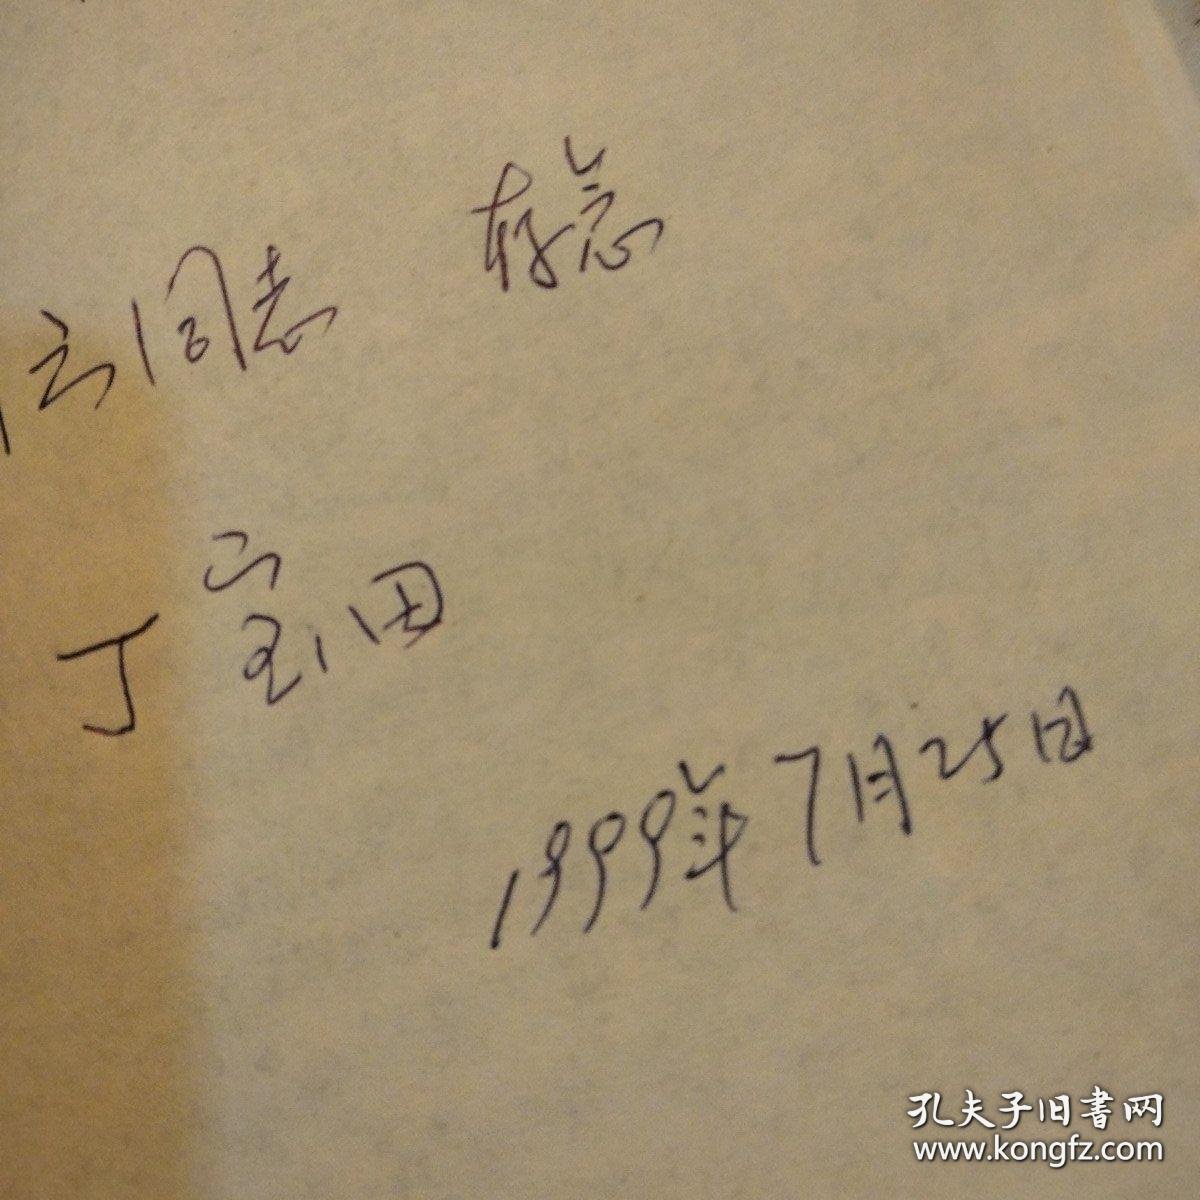 云同志 存念
丁宝田
1999年7月25日
孔夫子旧書网
www.kongfz.com